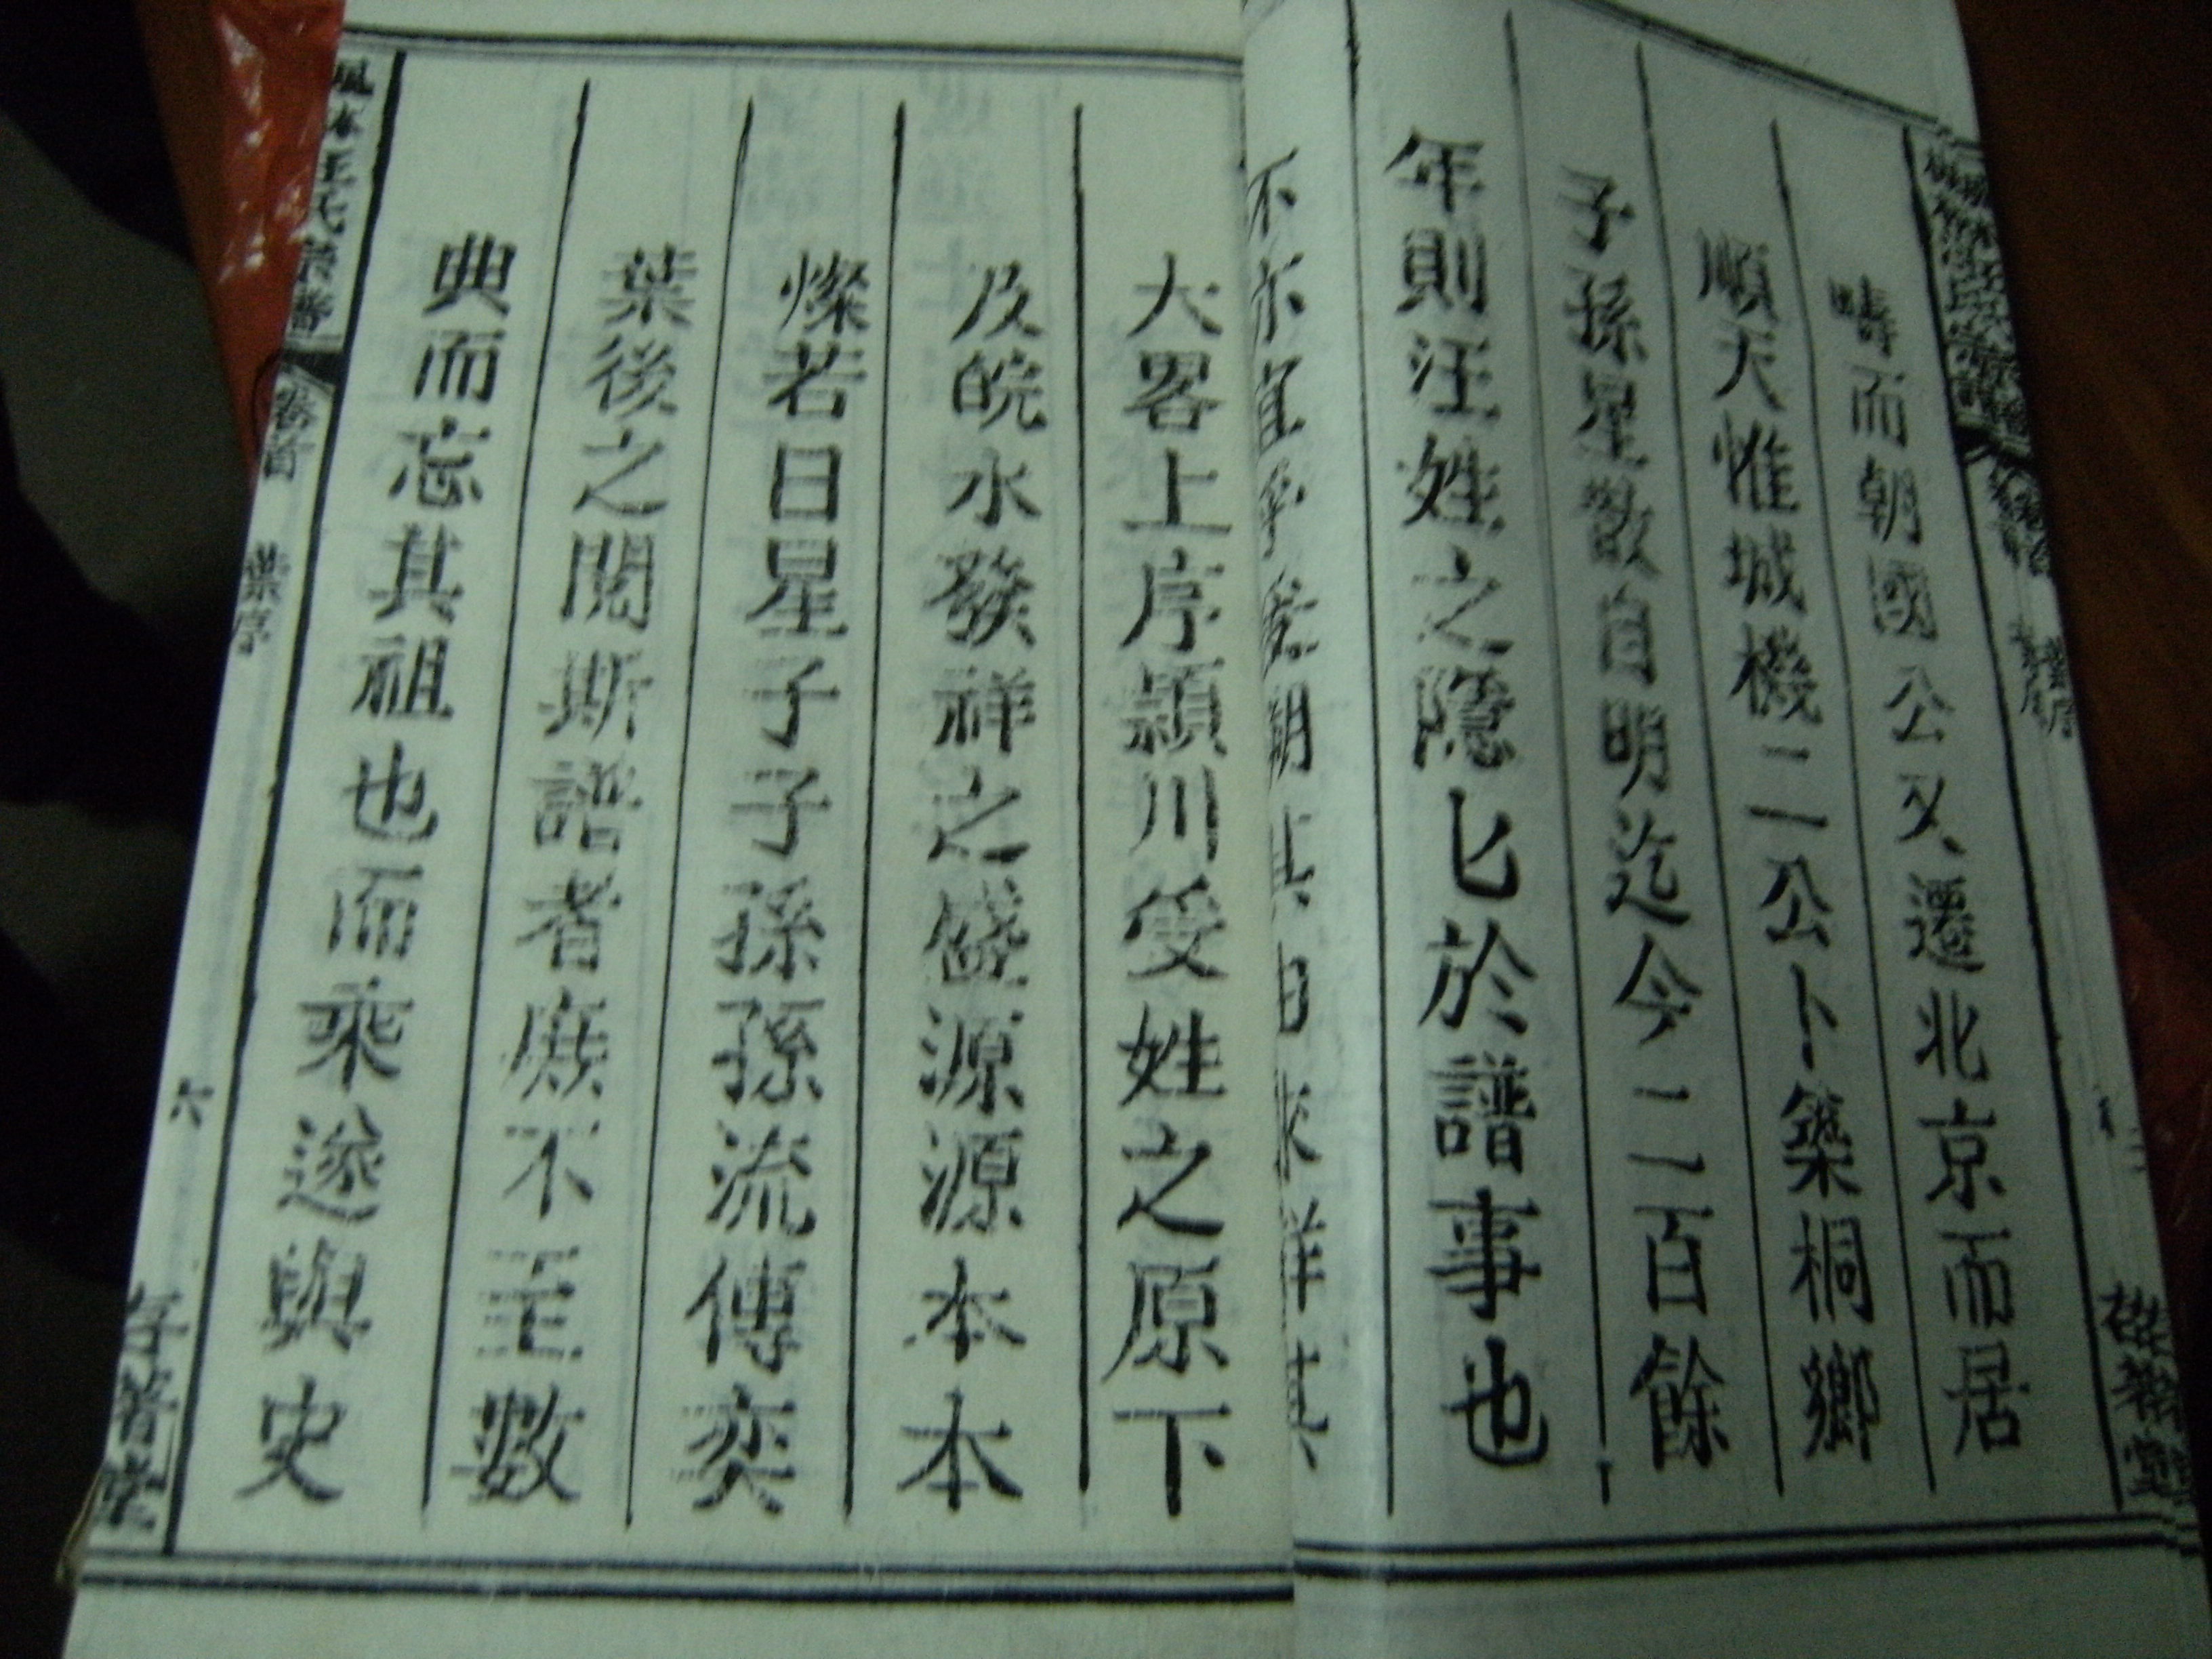 疇而朝國公又遷北京而居
順天惟城機二公卜築桐鄉
子孫星散自明迄今二百餘
年則汪姓之隱匕於譜事也
不亦宜乎
大畧上序潁川受姓之原下
及皖水發祥之盛源源本本
燦若日星子子孫孫流傳奕
葉後之閱斯譜者庶不至數
典而忘其祖也而乘遂與史
汪氏宗譜
卷首
葉序
六